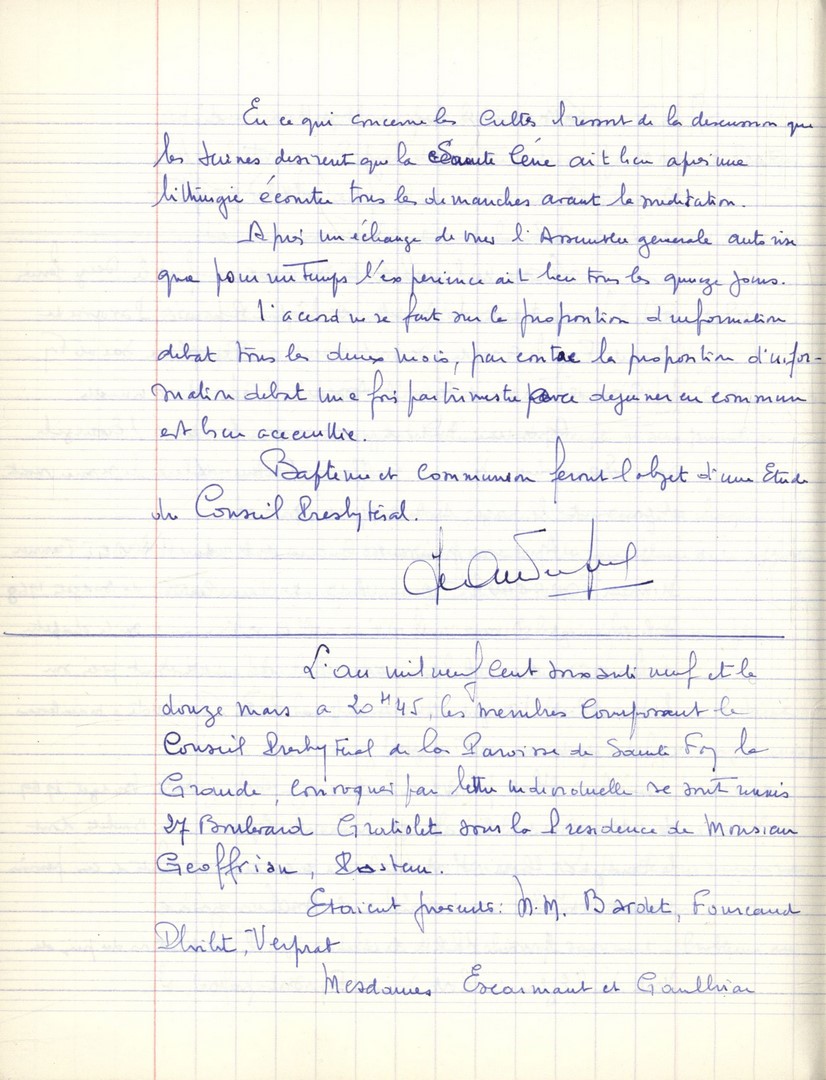 En ce qui concerne les Cultes il ressort de la discussion que
les jeunes desirent que la Sainte Cène ait lieu après une
lithurgie écourtée tous les dimanches avant la méditation.
Après un échange de vues l'Assemblée generale autorise
que pour un Temps l'experience ait lieu tous les quinze jours.
l'accord ne se fait sur la proposition d'information
debat tous les deux mois, par contre la proposition d'infor-
mation debat une fois par trimestre avec dejeuner en commun
est bien accueillie.
Bapteme et Communion feront l'objet d'une Etude
du Conseil Presbytéral.
L'an mil neuf cent soixante neuf et le
douze mars a 20H45, les membres composant le
Conseil Presbyteral de la Paroisse de Sainte Foy la
Grande, convoqués par lettre individuelle se sont reunis
27 Boulevard Gratiolet sous la Presidence de Monsieur
Geoffrion, Pasteur.
Etaient presents: M.M. Bardet, Fourcaud
Verprat
Mesdames Escarmant et Gaulthier